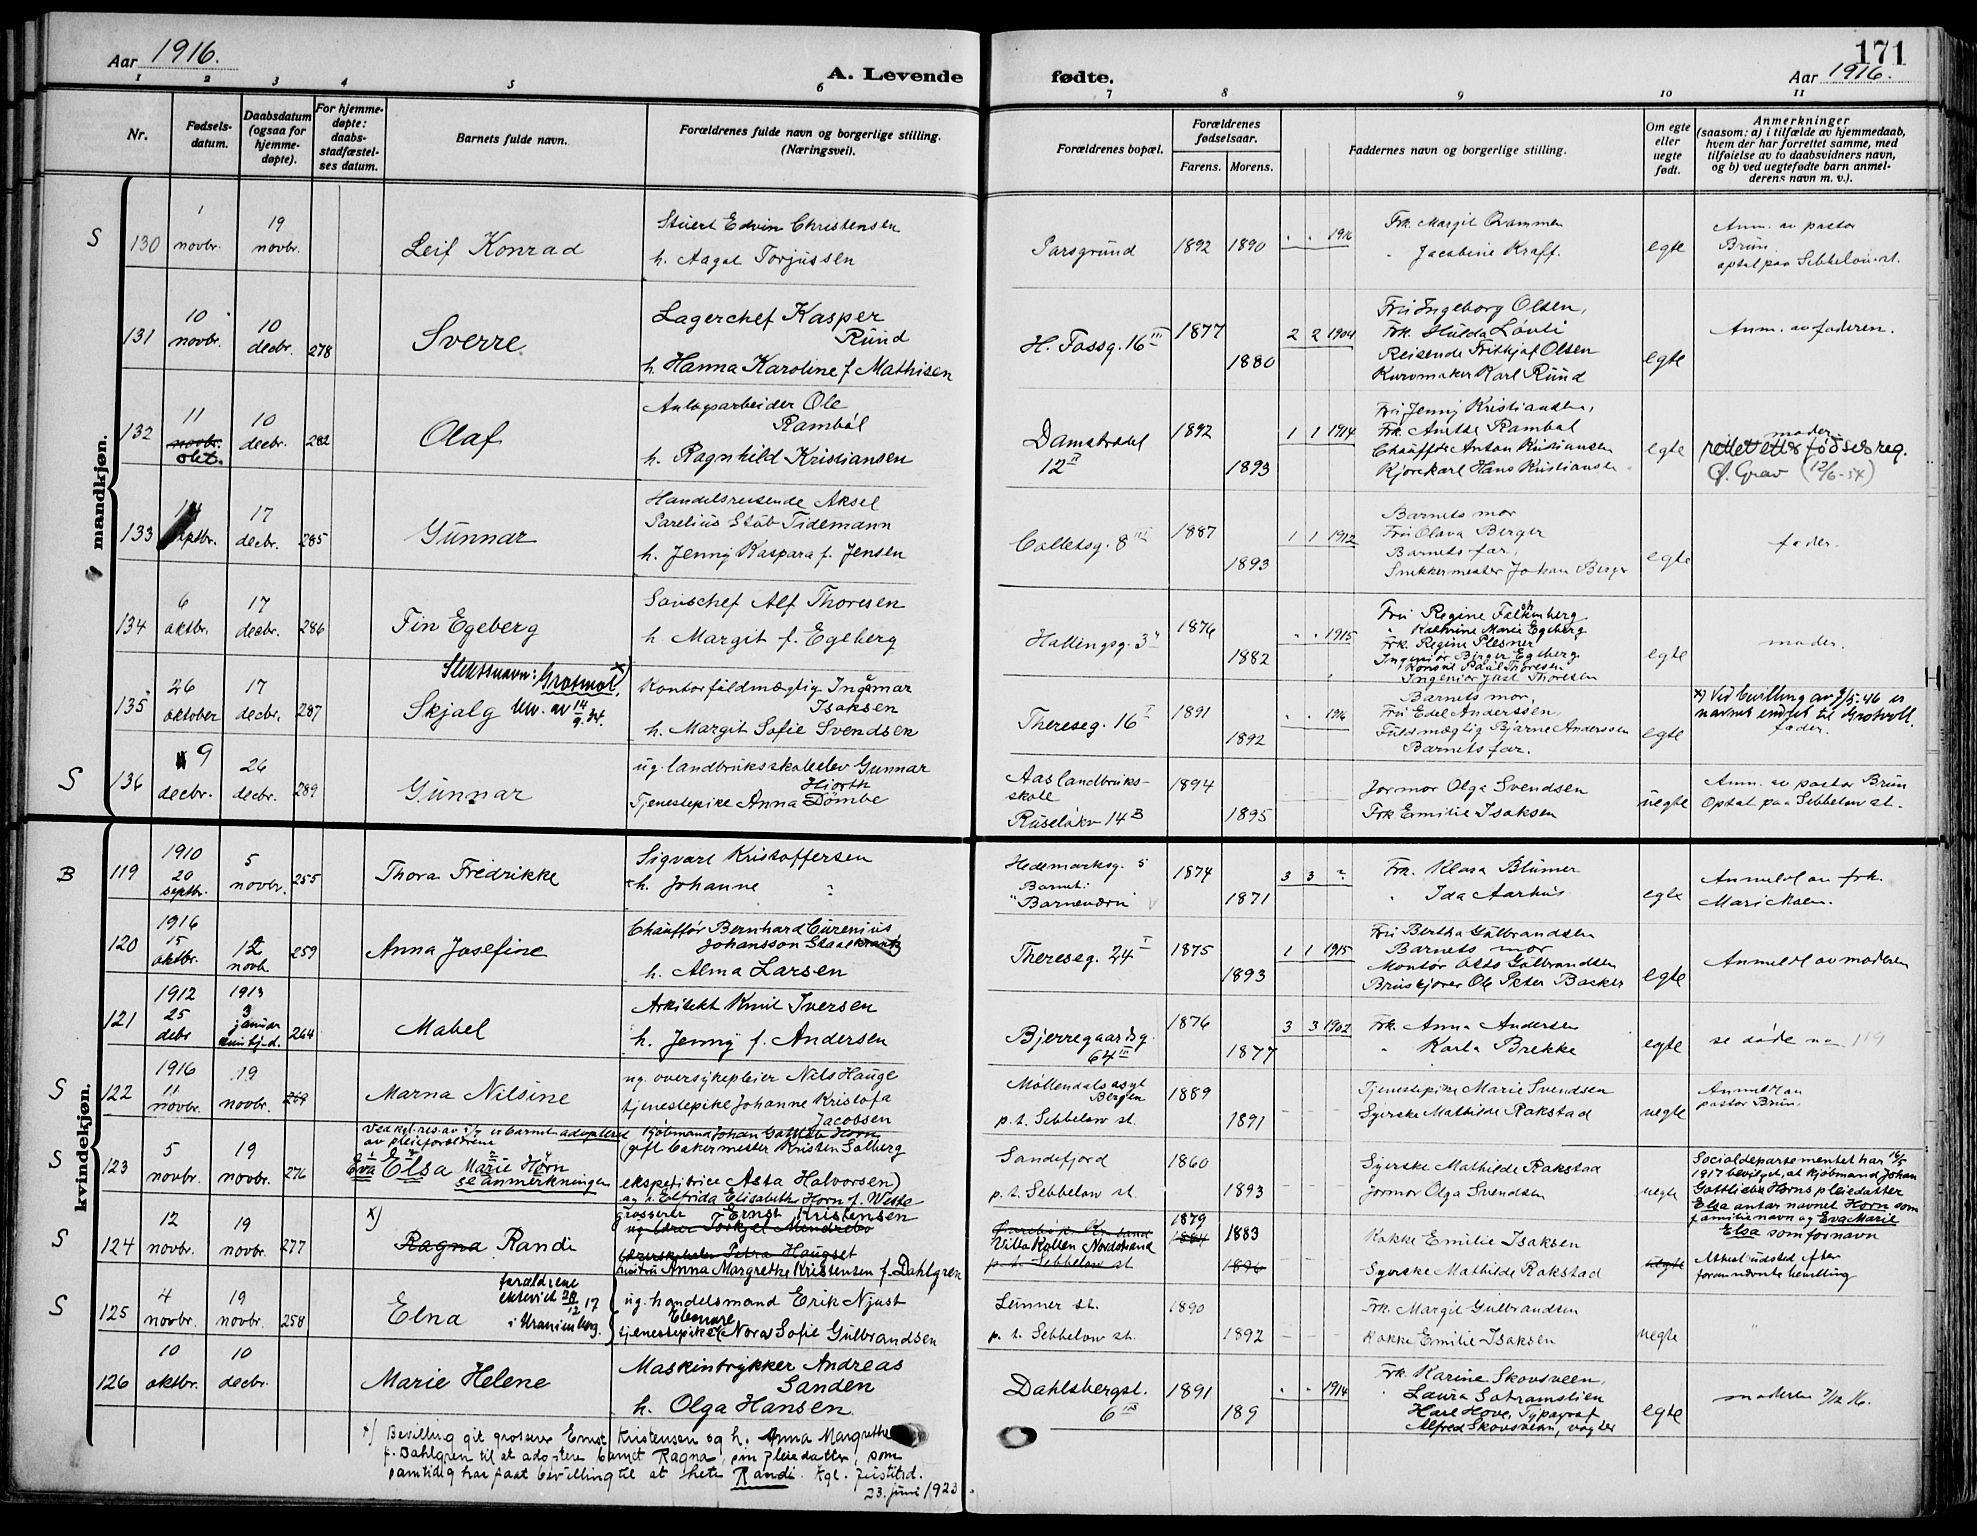 Aar 1916.
A. Levende fødte.
171
Aar 1916.
1 2 3 4 5 6 7 8 9 10 11
Nr.
Fødsels-
datum.
Daabsdatum
(ogsaa for
hjemme-
døpte).
For hjemme-
døpte:
daabs-
stadfæstel-
ses datum.
Barnets fulde navn.
Forældrenes fulde navn og borgerlige stilling.
(Næringsvei).
Forældrenes bopæl.
Forældrenes
fødselsaar.
Farens. Morens.
Faddernes navn og borgerlige stilling.
Om egte
eller
uegte
født.
Anmerkninger
(saasom: a) i tilfælde av hjemmedaab,
hvem der har forrettet samme, med
tilføielse av to daabsvidners navn,
og b) ved uegtefødte barn anmel-
derens navn m. v.).
mandkjøn.
S 130 1 novbr. 19 novbr. Leif Konrad
Stuert Edvin Christensen
h. Aagot Torjussen
Porsgrund 1892 1890 " " 1916
Frk. Margit
" Jacobine Kraft.
egte
Anm. av pastor
Brun.
optat paa Sebbelow st.
131 10 novbr. 10 decbr. 278 Sverre
Lagerchef Kasper
Ruud
h. Hanna Karoline f. Mathisen
H. Tossg. 16 III 1877 1880 2 2 1904
Fru Ingeborg Olsen,
Frk. Hulda Løvli
Reisende Fritkjof Olsen
Kurvmaker Karl Ruud
egte
Anm. av faderen.
132 11 novbr. okt. 10 decbr. 282 Olaf
Anlægsarbeider Ole
Rambøl
h. Ragnhild Kristiansen
Damstrædet
12 II 1892 1893 1 1 1914
Fru Jenny Kristiansen,
Frk. Rambøl
Chauffør Anton Kristiansen
Kjørekarl Hans Kristiansen
egte
moder.
rettet etter fødselsreg.
Ø. Grav (12/6-54)
133 14 septbr. 17 decbr. 285 Gunnar
Handelsreisende Aksel
Parelius Stub Tidemann
h. Jenny Kaspara f. Jensen
Colletsg. 8 III 1887 1893 1 1 1912
Barnets mor
Fru Olava Berger
Barnets far,
Snekkermester Johan Berger
egte
fader.
134 6 oktbr. 17 decbr. 286 Fin Egeberg
Souschef Alf Thoresen
h. Margit f. Egeberg
Hallingsg. 3 1876 1882 " " 1915
Fru Regine Falkenberg
" Kathrine Marie Egeberg
Frk. Regine Plesner
Ingeniør Birger Egeberg
Konsul Paal Thoresen
Ingeniør Just Thoresen
egte
moder.
Slektsnavn: Grotmol x)
135 26 oktober 17 decbr. 287 Skjalg bev. av 14/9.34
Kontorfuldmægtig Ingemar
Isaksen
h. Margit Sofie Svendsen
Thereseg. 16 I 1891 1892 " " 1916
Barnets mor,
Fru Edel Anderssen,
Fuldmægtig Bjarne Anderssen
Barnets far.
egte
x) Ved bevilling av 9/5-46 er
navnet endret til Grotvoll.
fader.
S 136 9 decbr. 26 decbr. 289 Gunnar
ug. landbruksskoleelev Gunnar
Hjorth
Tjenestepike Anna Dømbe
Aas landbruks-
skole
Ruseløkv 14 B 1894 1895
Jormor Olga Svendsen
Frk Emilie Isaksen
uegte
Anm. av pastor Brun
Optat paa Sebbelow st.
kvindekjøn.
B 119 1910 20 septbr. 5 novbr. 255 Thora Fredrikke
Sigvart Kristoffersen
h. Johanne "
Hedemarksg. 5
Barnet:
"Barnevern" 1874 1871 3 3 ?
Frk. Klara Blumer
" Ida Aarhus
egte
Anmeldt av frk.
Mari Moen.
120 1916 15 oktbr. 12 novb. 259 Anna Josefine
Chauffør Bernhard Curenius
Johansson Staalkrantz
h. Alma Larsen
Thereseg. 24 I 1875 1893 1 1 1915
Fru Bertha Gulbrandsen
Barnets mor
Montør Otto Gulbrandsen
Bruskjører Ole Peter Backer
egte
Anmeldt av moderen
121 1912 25 debr 1913 3 januar 264 Mabel
Arkitekt Knut Iversen
h. Jenny f. Andersen
Bjerregaardsg.
64 III 1876 1877 3 3 1902
Frk. Anna Andersen
" Karla Brekke
egte
se døde no 119
S 122 1916 11 novbr. 19 novbr. 269 Marna Nilsine
ug. oversykepleier Nils Hauge
tjenestepike Johanne Kristofa
Jacobsen
Møllendals asyl
Bergen
p.t. Sebbelow st. 1889 1891
Tjenestepike Marie Svendsen
Syerske Mathilde Rakstad
uegte
Anmeldt av
pastor Brun.
S 123 5 novbr. 19 novbr. 276
av pleieforældrene
Eva Elsa Marie Horn
se anmerkningen
Kjøbmand Johan Gottlieb Horn
(gift bakermester Kristen Solberg
ekspeditrice Asta Halvorsen)
og h. Elfrida Elisabeth Horn f. Weste
Sandefjord
p.t. Sebbelow st. 1860 1893
Syerske Mathilde Rakstad
Jormor Olga Svendsen
uegte
Socialdepartementet har 16/5
1917 bevilget, at kjøbmand Johan
Gottlieb Horns pleiedatter
Elsa antar navnet Horn som
familienavn og Eva Marie
Elsa som fornavn
S 124 12 novbr. 19 novbr. 277 x) Ragna Randi
grosserer Ernst Kristensen
ug lærer Torkjel Mendrebø
Petra Haugset
hustru Anna Margrethe Kristensen f. Dahlgren
Villa Kollen Nordstrand
p.t. Sebbelow st 1879 1884 1883 1896
Kokke Emilie Isaksen
Syerske Mathilde Rakstad
uegte
Attest utsted efter
foran nævnte bevilling
S 125 4 novbr. 19 novbr. 258 Elna
forældrene
ektevied 28/12 17
i Uranienborg.
ug. handelsmand Erik Njust
Eleonore
tjenestepike Nora Sofie Gulbrandsen
Lunner st.
p.t. Sebbelow st. 1890 1892
Frk. Margit Gulbrandsen
Kokke Emilie Isaksen
uegte
"
126 10 oktbr. 10 decbr. Marie Helene
Maskintrykker Andreas
Sanden
h. Olga Hansen.
Dahlsbergst.
6 III 1891 189 " " 1914
Frk. Karine Skovsveen,
" Laura Sotramslien
Karl Hove, Typograf
Alfred Skovsveen, vogter
egte
moderen 7/12 16.
x) Bevilling git grosserer Ernst Kristensen og h. Anna Margrethe
f. Dahlgren til at adoptere barnet Ragna, sin pleiedatter, som
samtidig har faat bevilling til at hete Randi. Kgl. justitsd.
23. juni 1923.